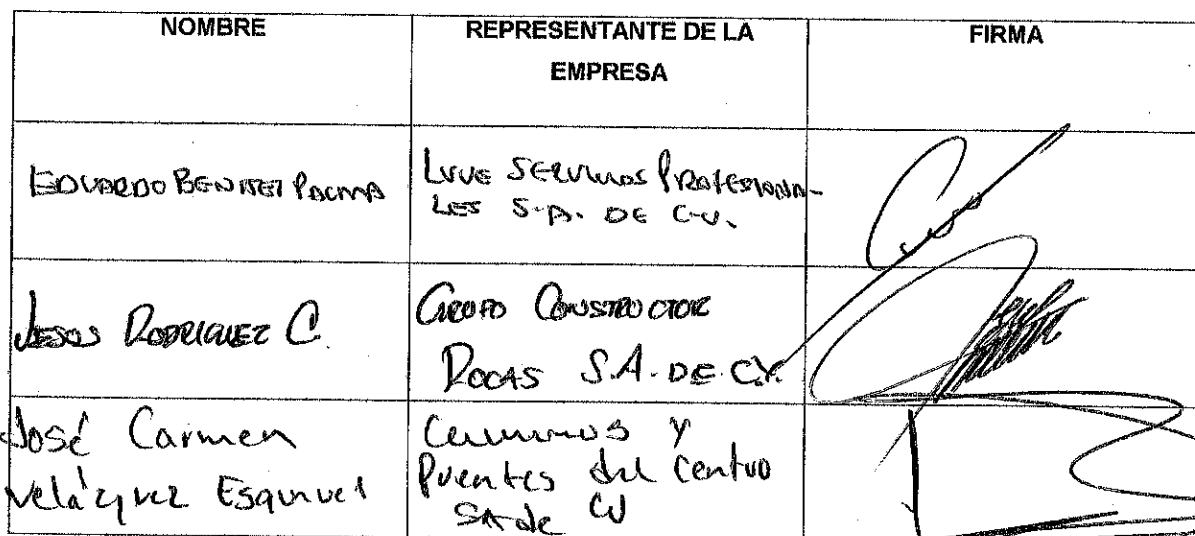 NOMBRE
REPRESENTANTE DE LA
EMPRESA
FIRMA
EDUARDO BENITEZ PALMA
LUVE SERVICIOS PROFESIONA-
LES S.A. DE C.V.
JESUS RODRIGUEZ C.
GRUPO CONSTRUCTOR
ROCAS S.A. DE C.V.
José Carmen
Velázquez Esquivel
Caminos y
Puentes del Centro
SA de CV